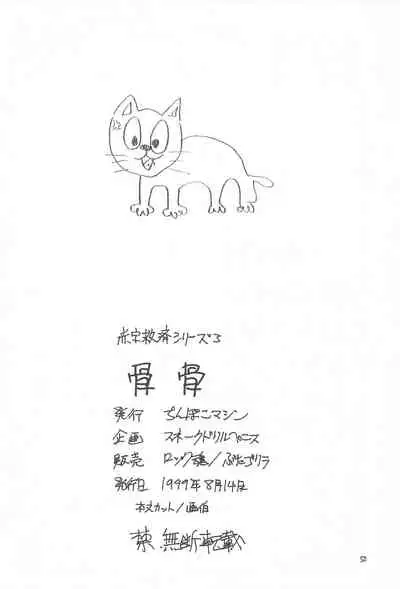 赤字救済シリーズ3
骨骨
発行 ちんぽこマシン
企画 スネークドリル
販売 ロック魂/ぶたゴリラ
発行日 1999年8月14日
本文カット/画伯
禁 無断転載